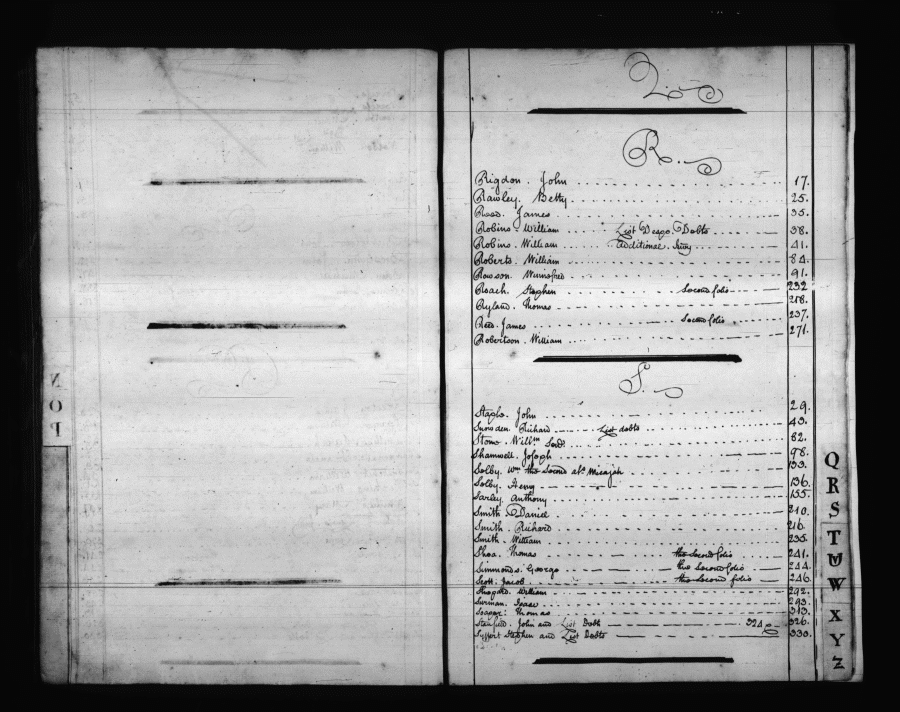 N
O
P
Q.
R.
Rigdon. John 17.
Rawley. Betty 25.
Reed. James 35.
Robins. William List Despo. Debts 38.
Robins. William Additional 41.
Roberts. William 84.
Rowson. Winnifred 91.
Roach. Stephen Second folio 232
Ryland. Thomas 218.
Reed. James Second folio 237.
Robertson. William 271.
S.
Staple. John 29.
Snowden. Richard List debts 43.
Stone. Willm. Senr. 62.
Shamwell. Joseph 98.
Solby. Wm. the Second als. Micajah 133.
Solby. Henry 136.
Sarley. Anthony 155.
Smith. Daniel 210.
Smith. Richard 216.
Smith. William 235.
Shea. Thomas the Second folio 241.
Simmonds. George the Second folio 244.
Scott. Jacob the Second folio 246.
Shepard. William 292.
Surman. Isaac 293.
Seager. Thomas 313.
Stanfied. John and List Debts 324 326.
Syppert Stephen and List Debts 330.
Q
R
S
T
U
W
X
Y
Z